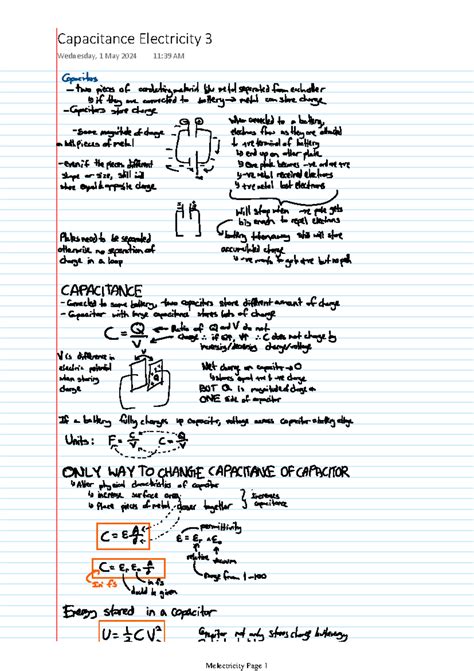 Capacitance Electricity 3
Wednesday, 1 May 2024 11:39 AM
Capacitors
- Two pieces of conducting material like metal separated from each other
↳ if they are connected to battery → metal can store charge
- Capacitors store charge
- Same magnitude of charge
on both pieces of metal
- even if the pieces different
shape or size, still will
store equal & opposite charge
Plates need to be separated
otherwise no separation of
charge in a loop
When connected to a battery,
electrons flow as they are attracted
to +ve terminal of battery
↳ end up on other plate
↳ One plate becomes -ve and +ve
↳ -ve metal received electrons
↳ +ve metal lost electrons
Will stop when -ve plate gets
big enough to repel electrons
↳ battery taken away still will store
accumulated charge
↳ -ve wants to get to +ve but no path
CAPACITANCE
- Connected to same battery, two capacitors store different amount of charge
- Capacitor with large capacitance stores lots of charge
C = Q/V ← Ratio of Q and V do not
change ∴ if Q↑, V↑ ∴ C does not change by
increasing/decreasing charge/voltage
V is difference in
electric potential
when storing
charge
Net charge on capacitor → 0
↳ stores equal +ve & -ve charge
BUT Q is magnitude of charge on
ONE side of capacitor
If a battery fully charges up capacitor, voltage across capacitor = battery voltage
Units: F = C/V C = Q/V
ONLY WAY TO CHANGE CAPACITANCE OF CAPACITOR
↳ Alter physical characteristics of capacitor
↳ increase surface area
↳ Place pieces of metal closer together
Increases
capacitance
C = ε A/d
permittivity
ε = εr × ε0
relative
vacuum
Range from 1 - 100
C = εr ε0 A/d
should be given
Energy stored in a capacitor
U = ½ C V²
Capacitor not only stores charge but energy
Melectricity Page 1